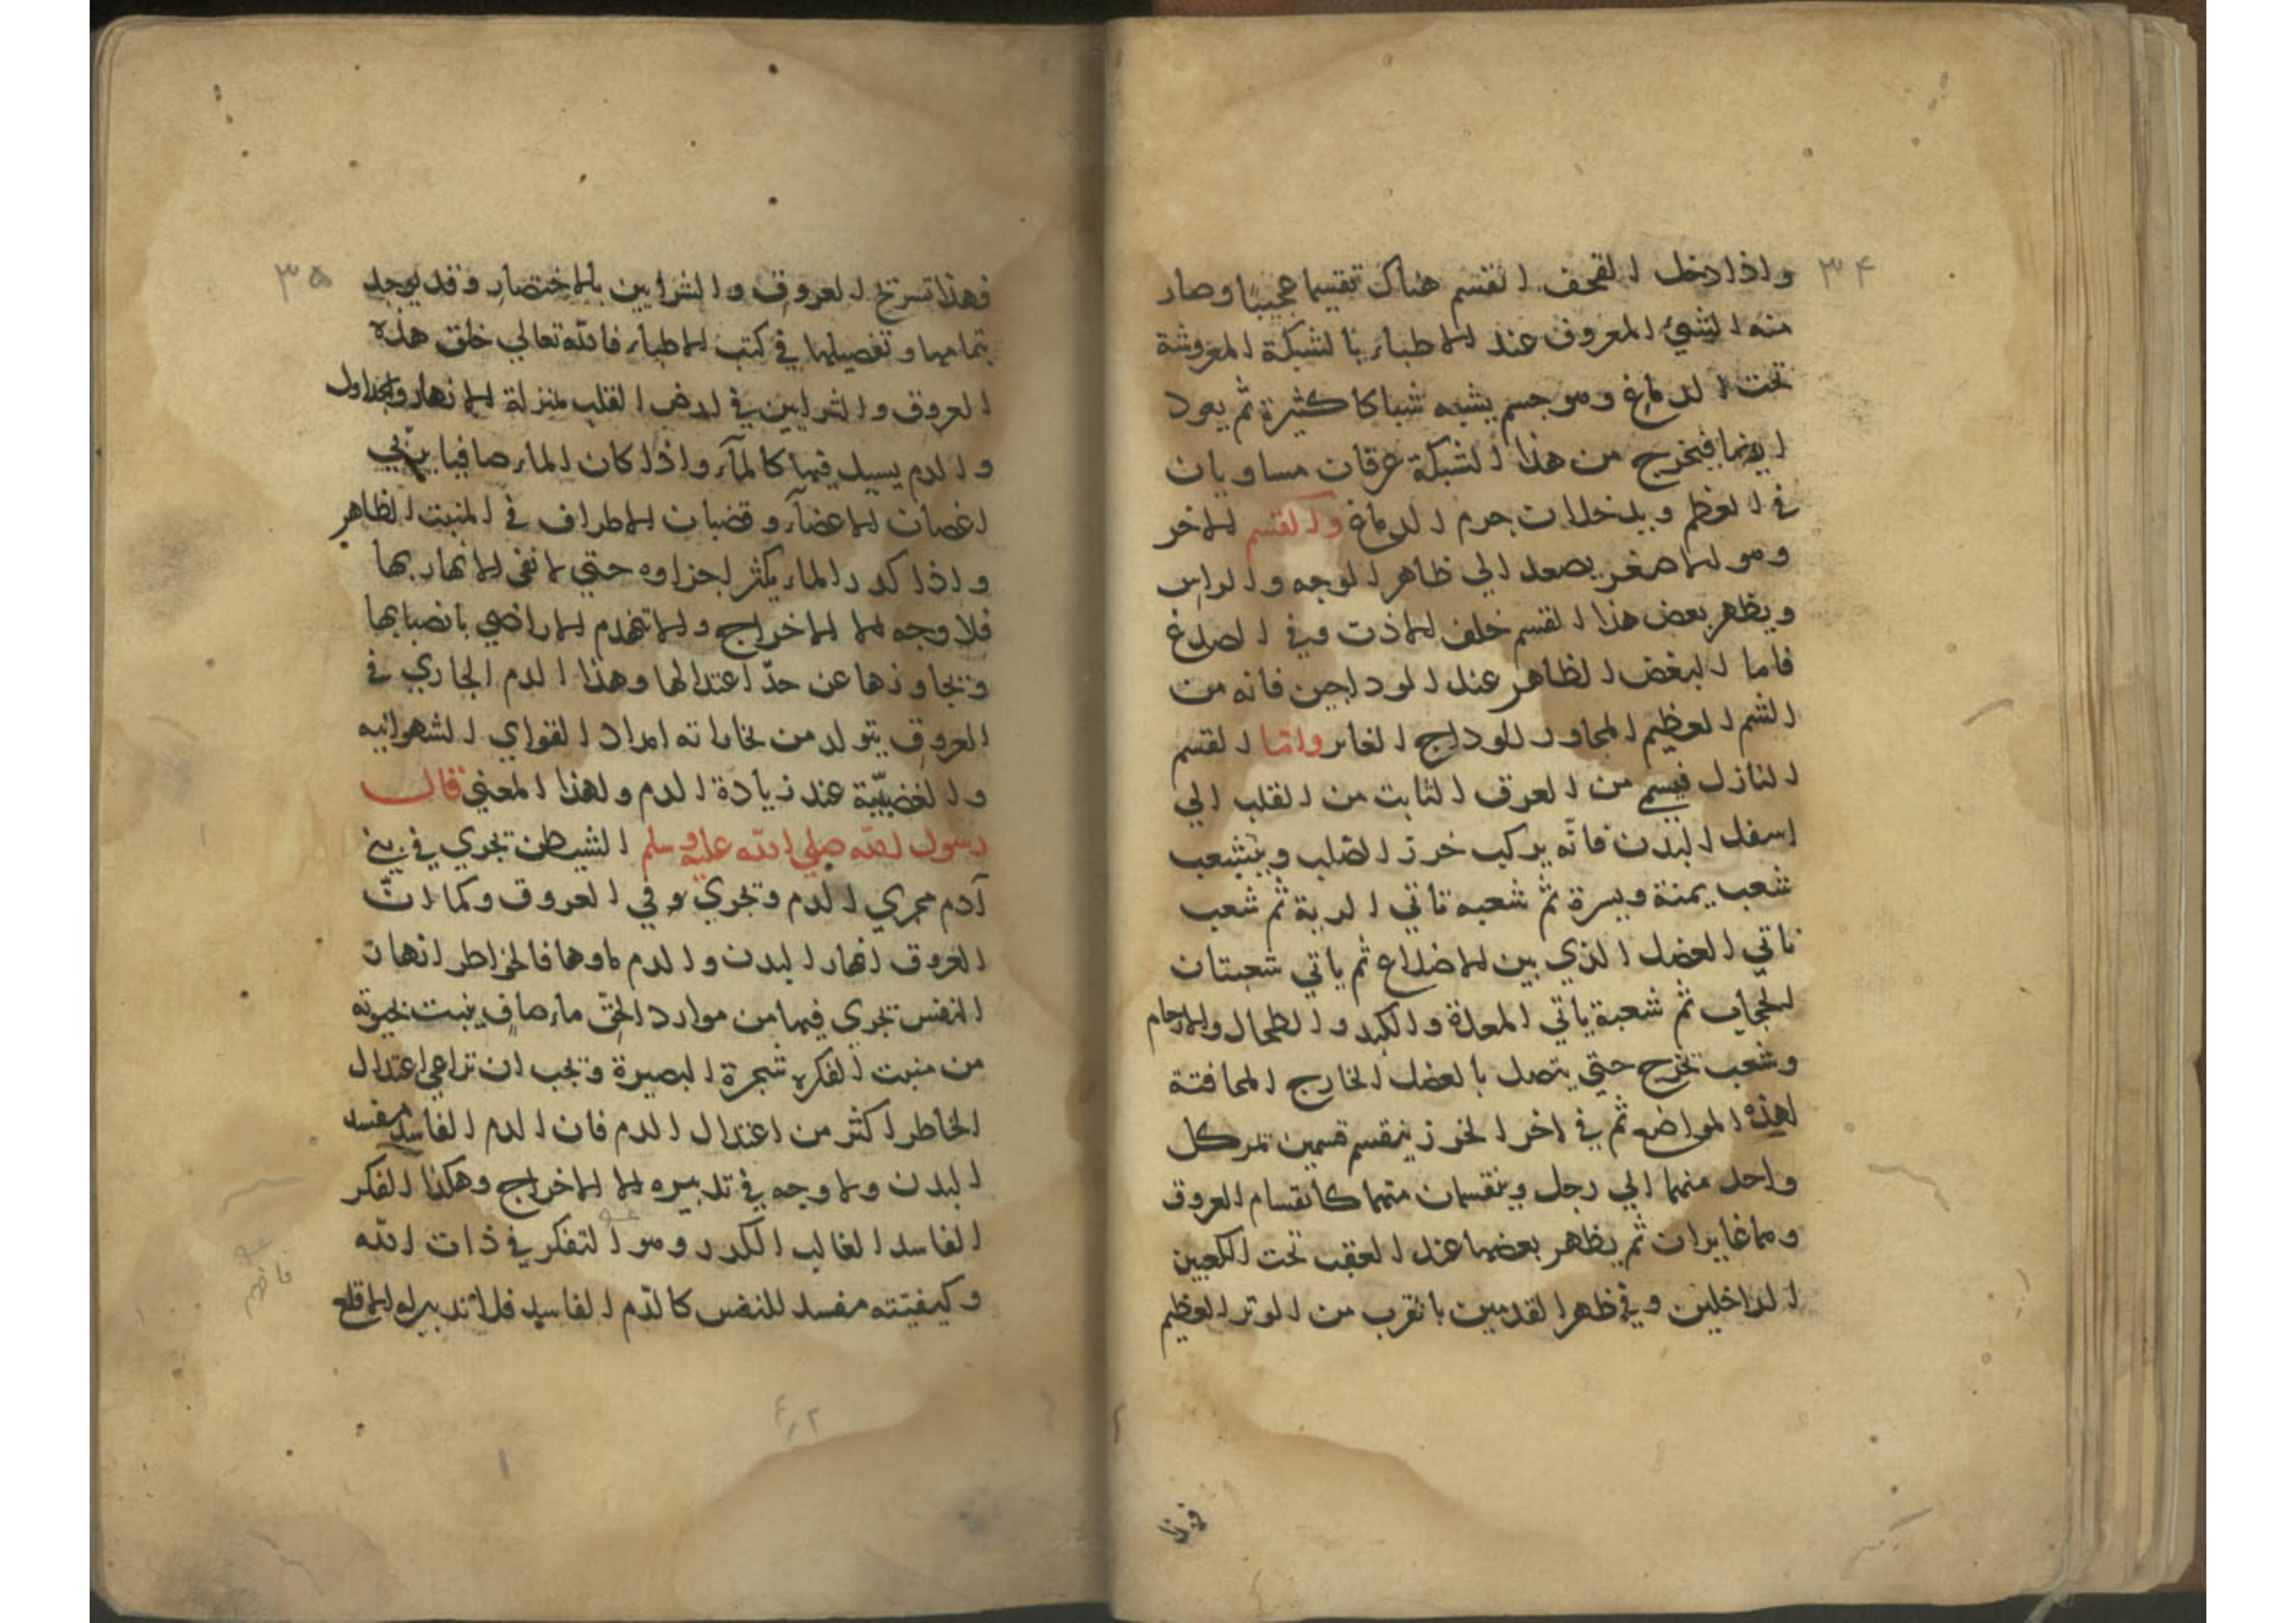 ٣٤
واذا دخل القحف انقسم هناك تقسيما عجيبا وصار
منه الشيئ المعروف عند الاطباء بالشبكة المعروشة
تحت الدماغ وهو جسم يشبه شباكا كثيرة ثم يعود
ايضا فيخرج من هذا الشبكة عرقان مساويان
في العظم ويدخلان جرم الدماغ والقسم الاخر
وهو الاصغر يصعد الي ظاهر الوجه والراس
ويظهر بعض هذا القسم خلف الاذن وفي الصدغ
فاما البعض الظاهر عند الوداجين فانه من
القسم العظيم المجاور للوداج الغاير واما القسم
النازل من العرق الثابت من القلب الي
اسفل البدن فانه يركب خرز الصلب ويتشعب
شعب يمنة ويسرة ثم شعبه تاتي الرية ثم شعب
تاتي العضل الذي بين الاضلاع ثم ياتي شعبتان
الحجاب ثم شعبة ياتي المعدة والكبد والطحال والارحام
وشعب تخرج حتي يتصل بالعضل الخارج المحافتة
لهذه المواضع ثم في اخر الخرز ينقسم قسمين تمر كل
واحد منهما الي رجل وينقسمان منهما كانقسام العروق
وهما غايران ثم يظهر بعضها عند العقب تحت الكعبين
الداخلين وفي ظهر القدمين بالقرب من الوتر العظيم
فهذا
٣٥
فهذا تسريح العروق والشرايين بالاختصار وقد يوجد
بتمامها وتفصيلها في كتب الاطباء فالله تعالي خلق هذه
العروق والشرايين في ارض القلب بمنزلة الانهار والجداول
والدم يسيل فيها كالمآء واذا كان الماء صافيا يربي
اغصان الاعضآء وقضبان الاطراف في المنبت الظاهر
واذا كدر الماء يكثر اجزاوه حتي لا تفي الانهار بها
فلا وجه الا الاخراج والا تنهدم الاراضي بانصبابها
وتجاوزها عن حدّ اعتدالها وهذا الدم الجاري في
العروق يتولد من بخاراته امداد القواي الشهوانيه
والغضبيّة عند زيادة الدم ولهذا المعني قال
رسول الله صلي الله عليه وسلم الشيطن تجري في بني
آدم مجري الدم وتجري في العروق وكما انّ
العروق انهار البدن والدم ماوها فالخواطر انهار
النفس تجري فيها من موارد الحقّ ماء صاف ينبت بقوته
من منبت الفكره شجرة البصيرة وتجب ان تراعي اعتدال
الخاطر اكثر من اعتدال الدم فان الدم الفاسد مفسد
البدن ولا وجه في تدبيره الا الاخراج وهكذا الفكر
الفاسد الغالب الكدر وهو التفكر في ذات الله
وكيفيتته مفسد للنفس كالدّم الفاسد فلا تدبير له الا قلع